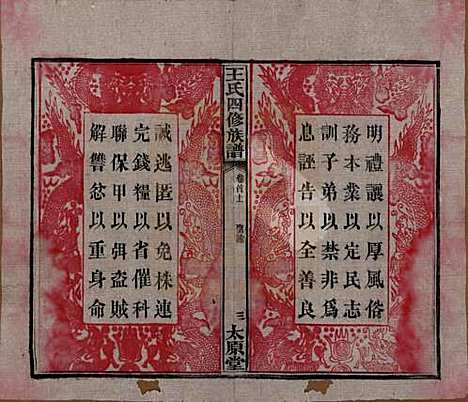 明禮讓以厚風俗
務本業以定民志
訓子弟以禁非為
息誣告以全善良
王氏四修族譜
卷首上
三
太原堂
誡逃匿以免株連
完錢糧以省催科
聯保甲以弭盜賊
解讐忿以重身命